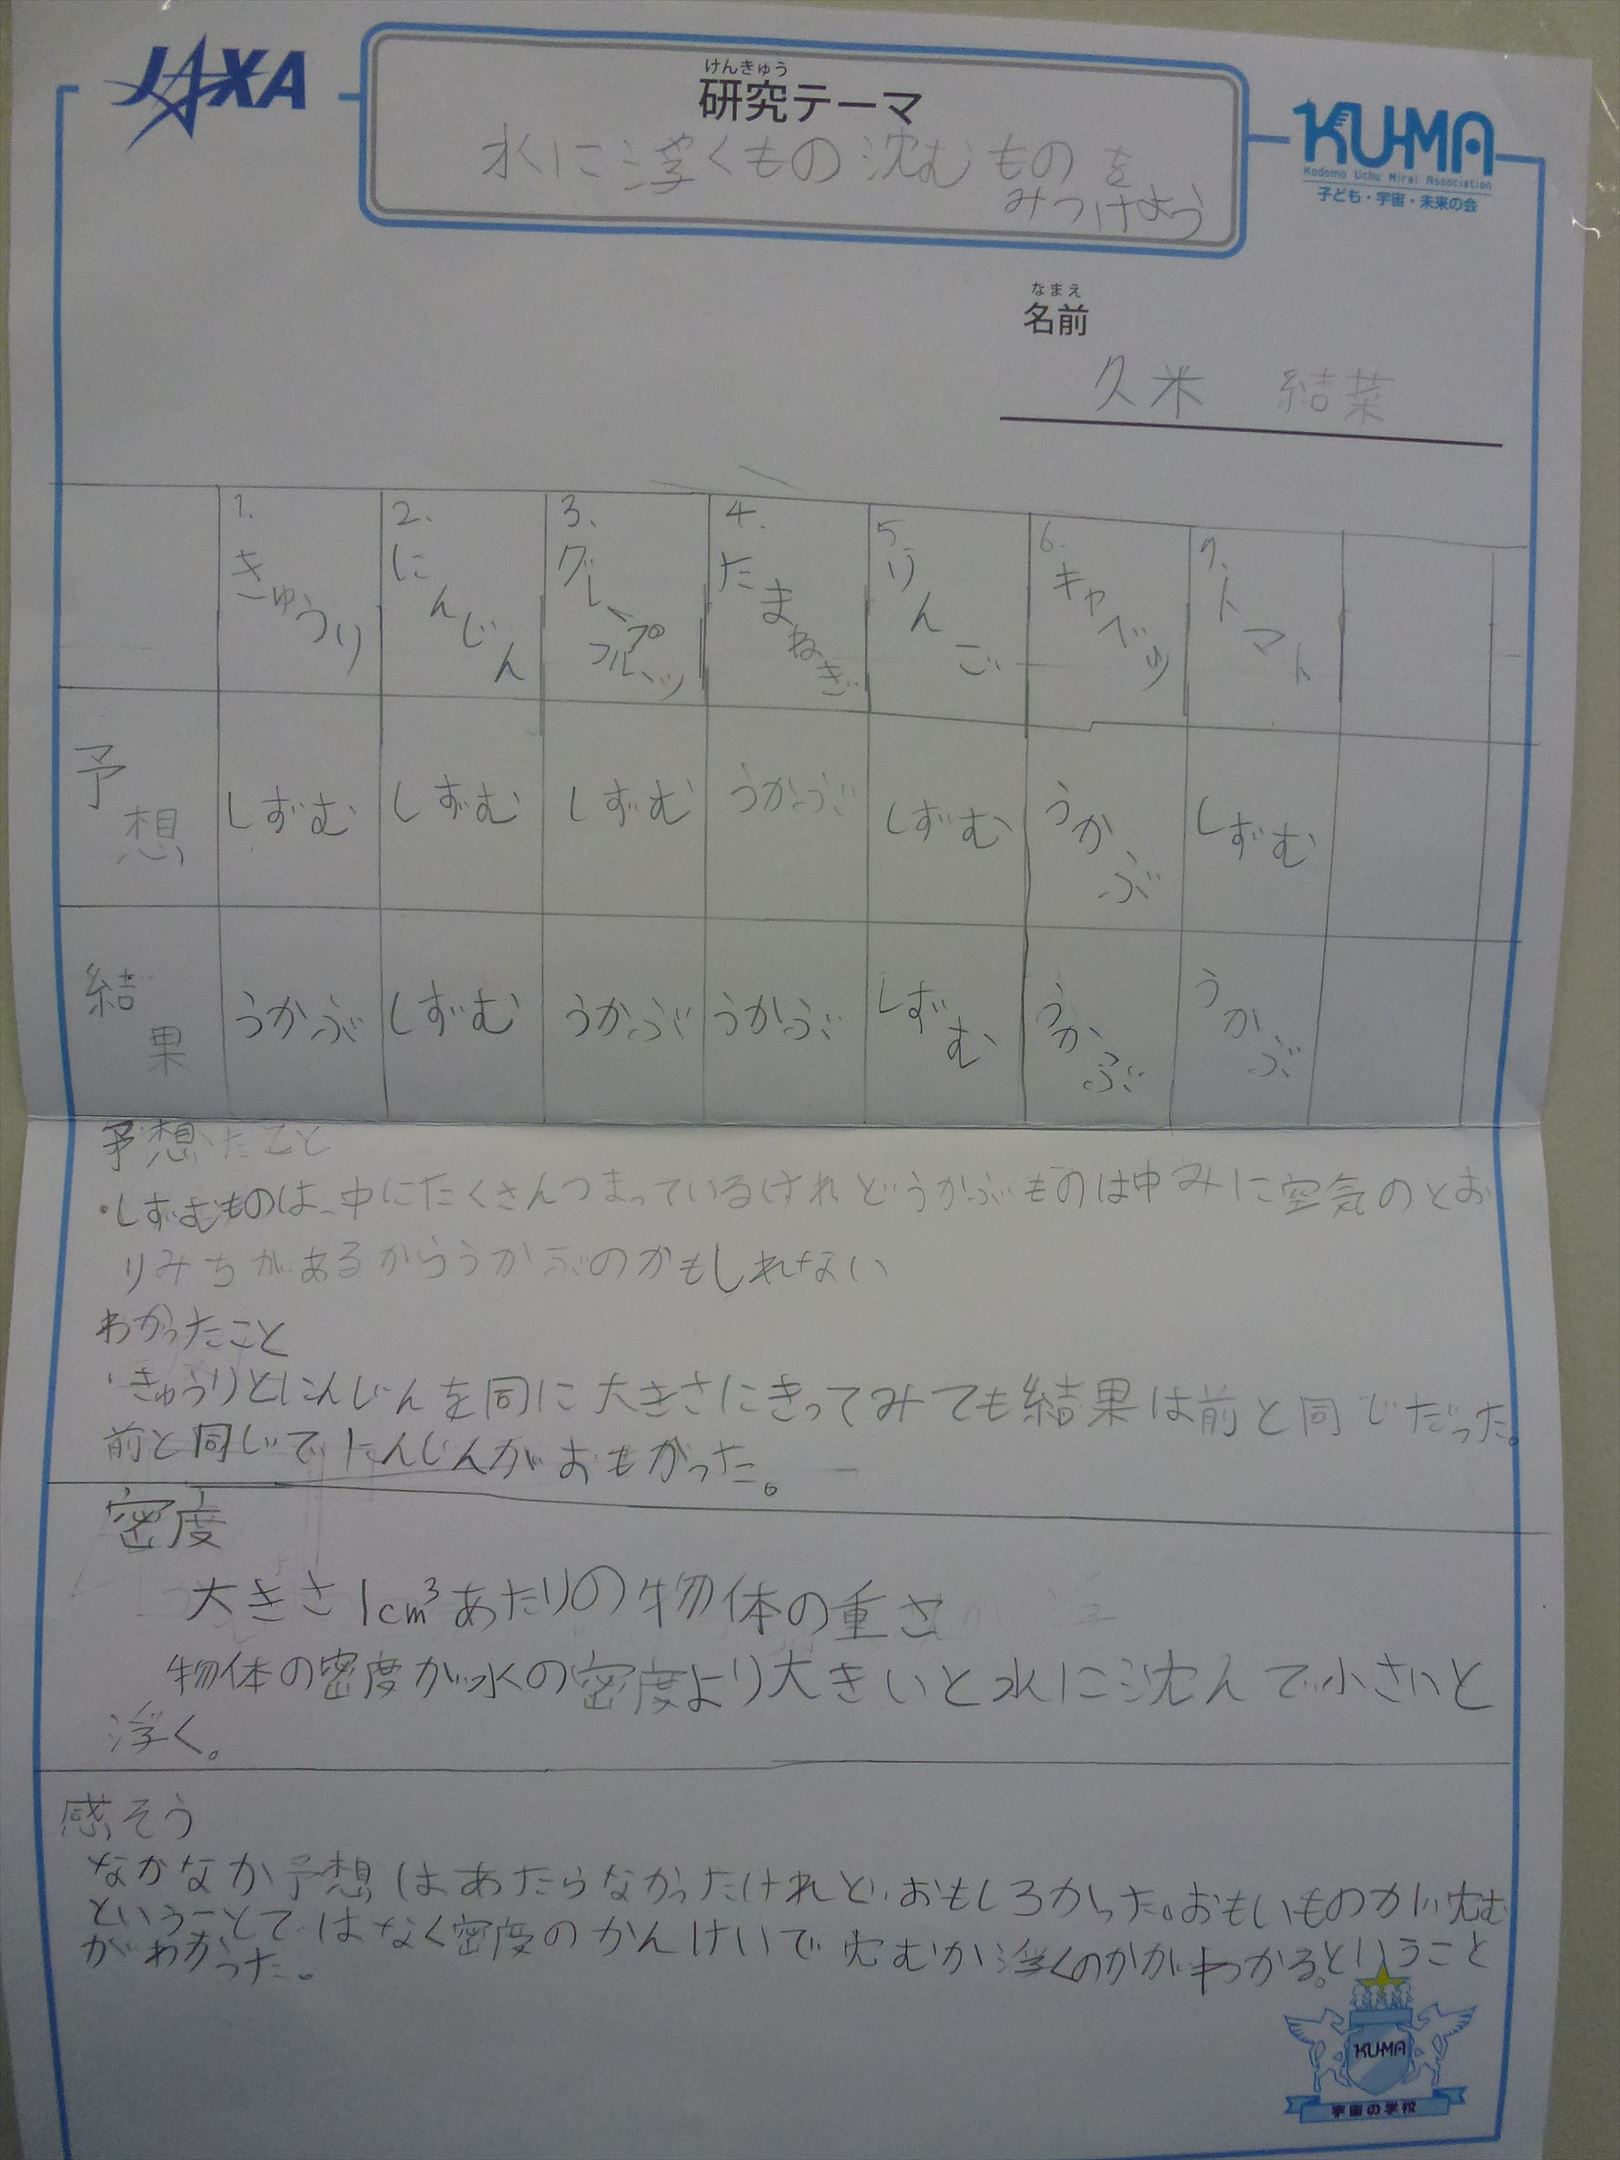 JAXA
けんきゅう
研究テーマ
水に浮くもの沈むものを
みつけよう
KU-MA
Kodomo Uchu Mirai Association
子ども・宇宙・未来の会
なまえ
名前
久米 結菜
1. きゅうり 2. にんじん 3. グレープフルーツ 4. たまねぎ 5 りんご 6. キャベツ 7. トマト
予想 しずむ しずむ しずむ うかぶ しずむ うかぶ しずむ
結果 うかぶ しずむ うかぶ うかぶ しずむ うかぶ うかぶ
予想たこと
・しずむものは、中にたくさんつまっているけれどうかぶものは中みに空気のとお
りみちがあるからうかぶのかもしれない
わかったこと
・きゅうりとにんじんを同に大きさにきってみても結果は前と同じだった。
前と同じでにんじんがおもかった。
密度
大きさ1cm³あたりの物体の重さ
物体の密度が水の密度より大きいと水に沈んで小さいと
浮く。
感そう
なかなか予想はあたらなかったけれど、おもしろかった。おもいものが沈む
ということではなく密度のかんけいで沈むか浮くのかがわかる。ということ
がわかった。
KU-MA
宇宙の学校